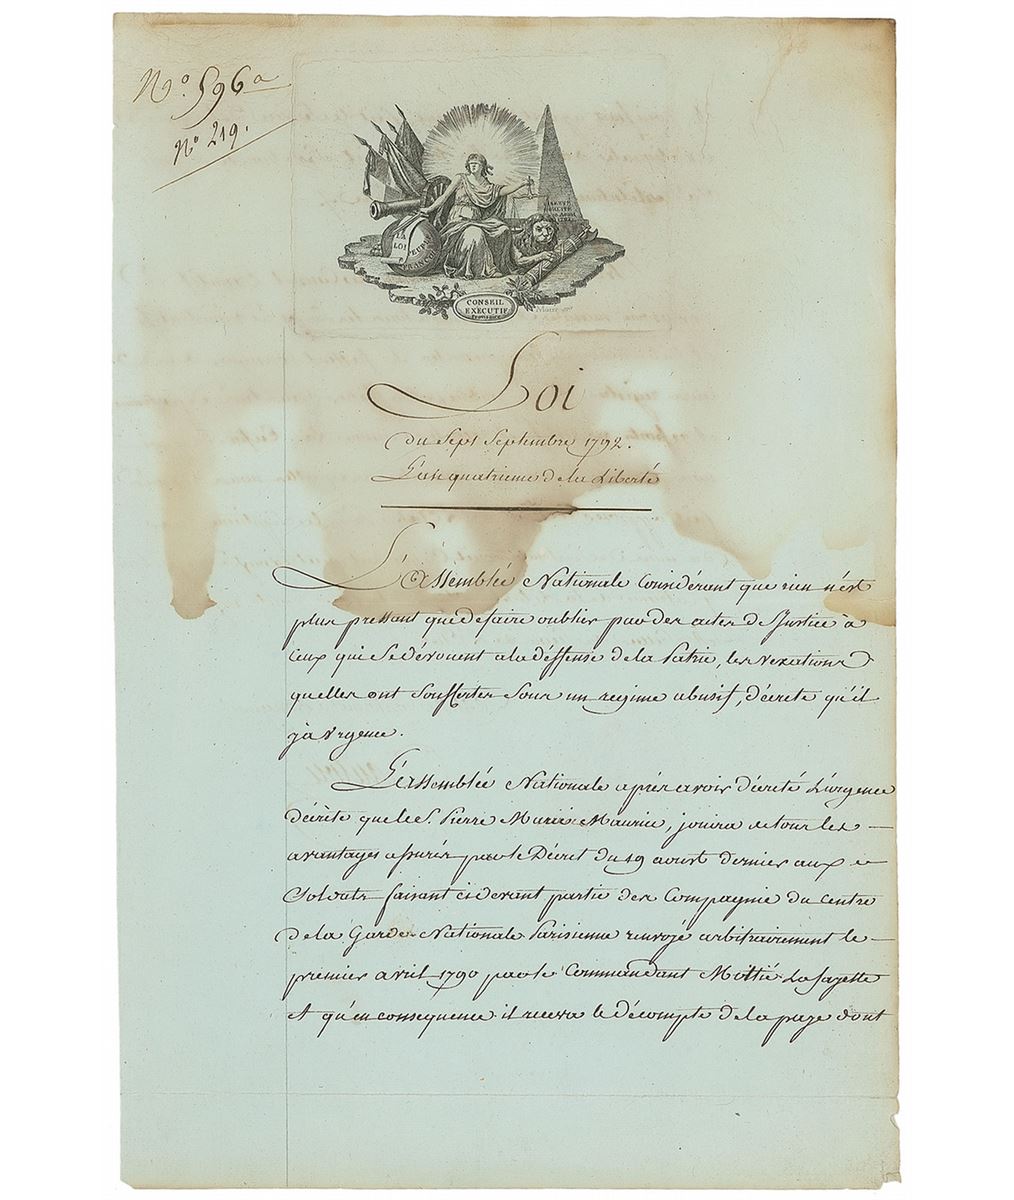 No. 596a
No. 219.
LA LOI
PEUPLE FRANÇOIS
CONSEIL
EXECUTIF
PROVISOIRE
Loi
du Sept Septembre 1792.
L'an quatrieme de la Liberté
L'assemblée Nationale Considérant que rien n'est
plus pressant que de faire oublier par des actes de Justice à
ceux qui se dévouent a la déffense de la Patrie, les vexations
quelles ont souffertes sous un regime abusif, décrete qu'il
y a Urgence.
L'assemblée Nationale après avoir décrété L'urgence
décrète que le S. Pierre Marie Maurice, jouira de tous les
avantages assurés par le Décret du 19 aoust dernier aux
Soldats faisant ci devant partie des Compagnie du Centre
de la Garde Nationale Parisienne renvoyé arbitrairement le
premier avril 1790 par le Commandant Mottié Lafayette
et qu'en consequence il recevra le décompte de la paye dont